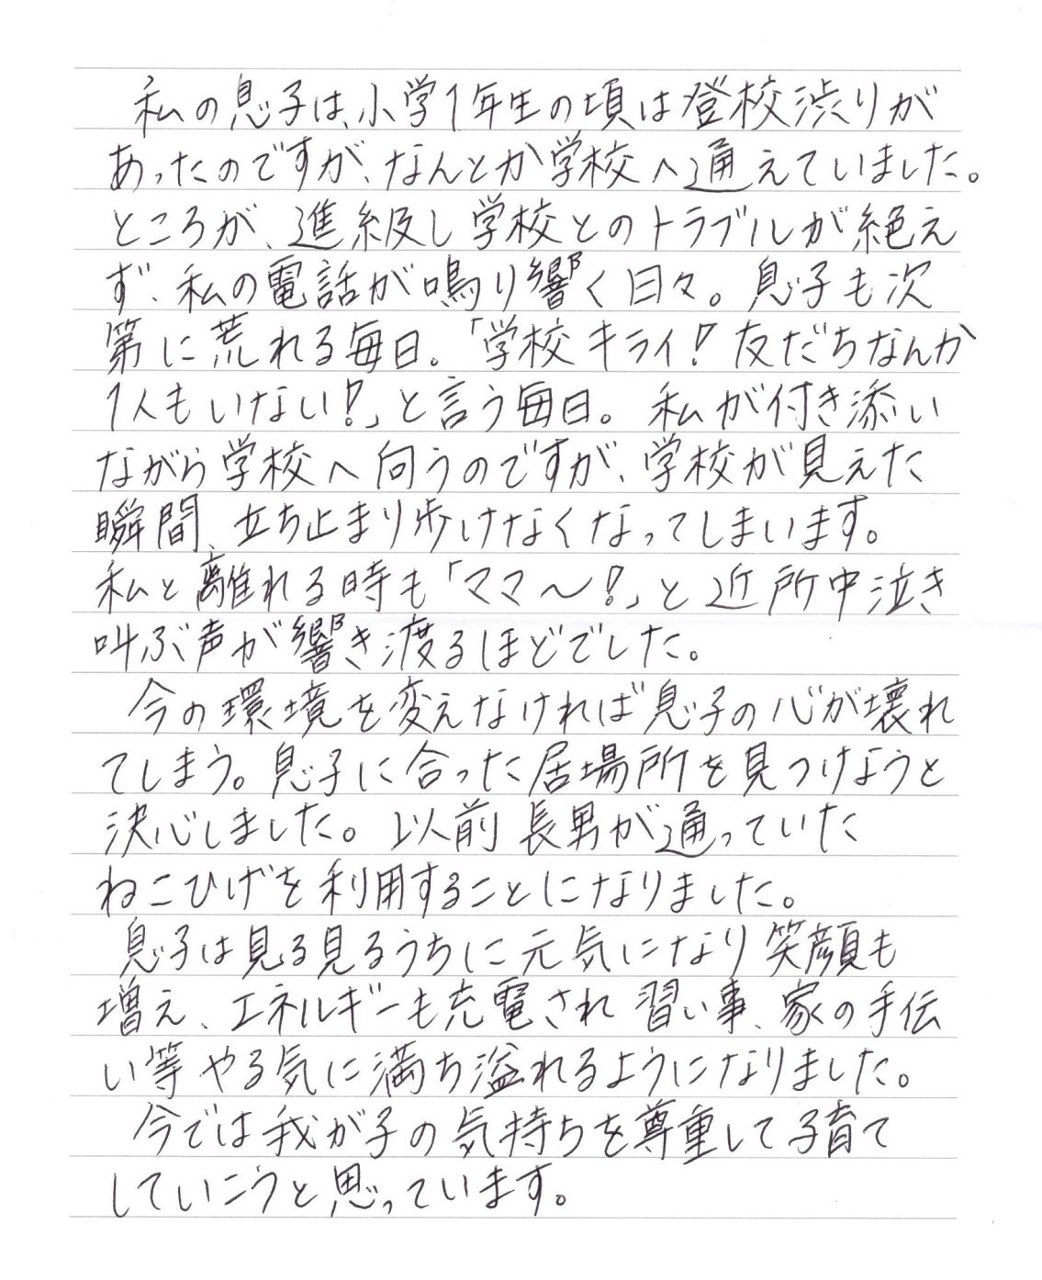 私の息子は、小学1年生の頃は登校渋りが
あったのですが、なんとか学校へ通えていました。
ところが、進級し学校とのトラブルが絶え
ず、私の電話が鳴り響く日々。息子も次
第に荒れる毎日。「学校キライ!友だちなんか
1人もいない!」と言う毎日。私が付き添い
ながら学校へ向うのですが、学校が見えた
瞬間、立ち止まり歩けなくなってしまいます。
私と離れる時も「ママ～!」と近所中泣き
叫ぶ声が響き渡るほどでした。
今の環境を変えなければ息子の心が壊れ
てしまう。息子に合った居場所を見つけようと
決心しました。以前長男が通っていた
ねこひげを利用することになりました。
息子は見る見るうちに元気になり笑顔も
増え、エネルギーも充電され習い事、家の手伝
い等やる気に満ち溢れるようになりました。
今では我が子の気持ちを尊重して子育て
していこうと思っています。